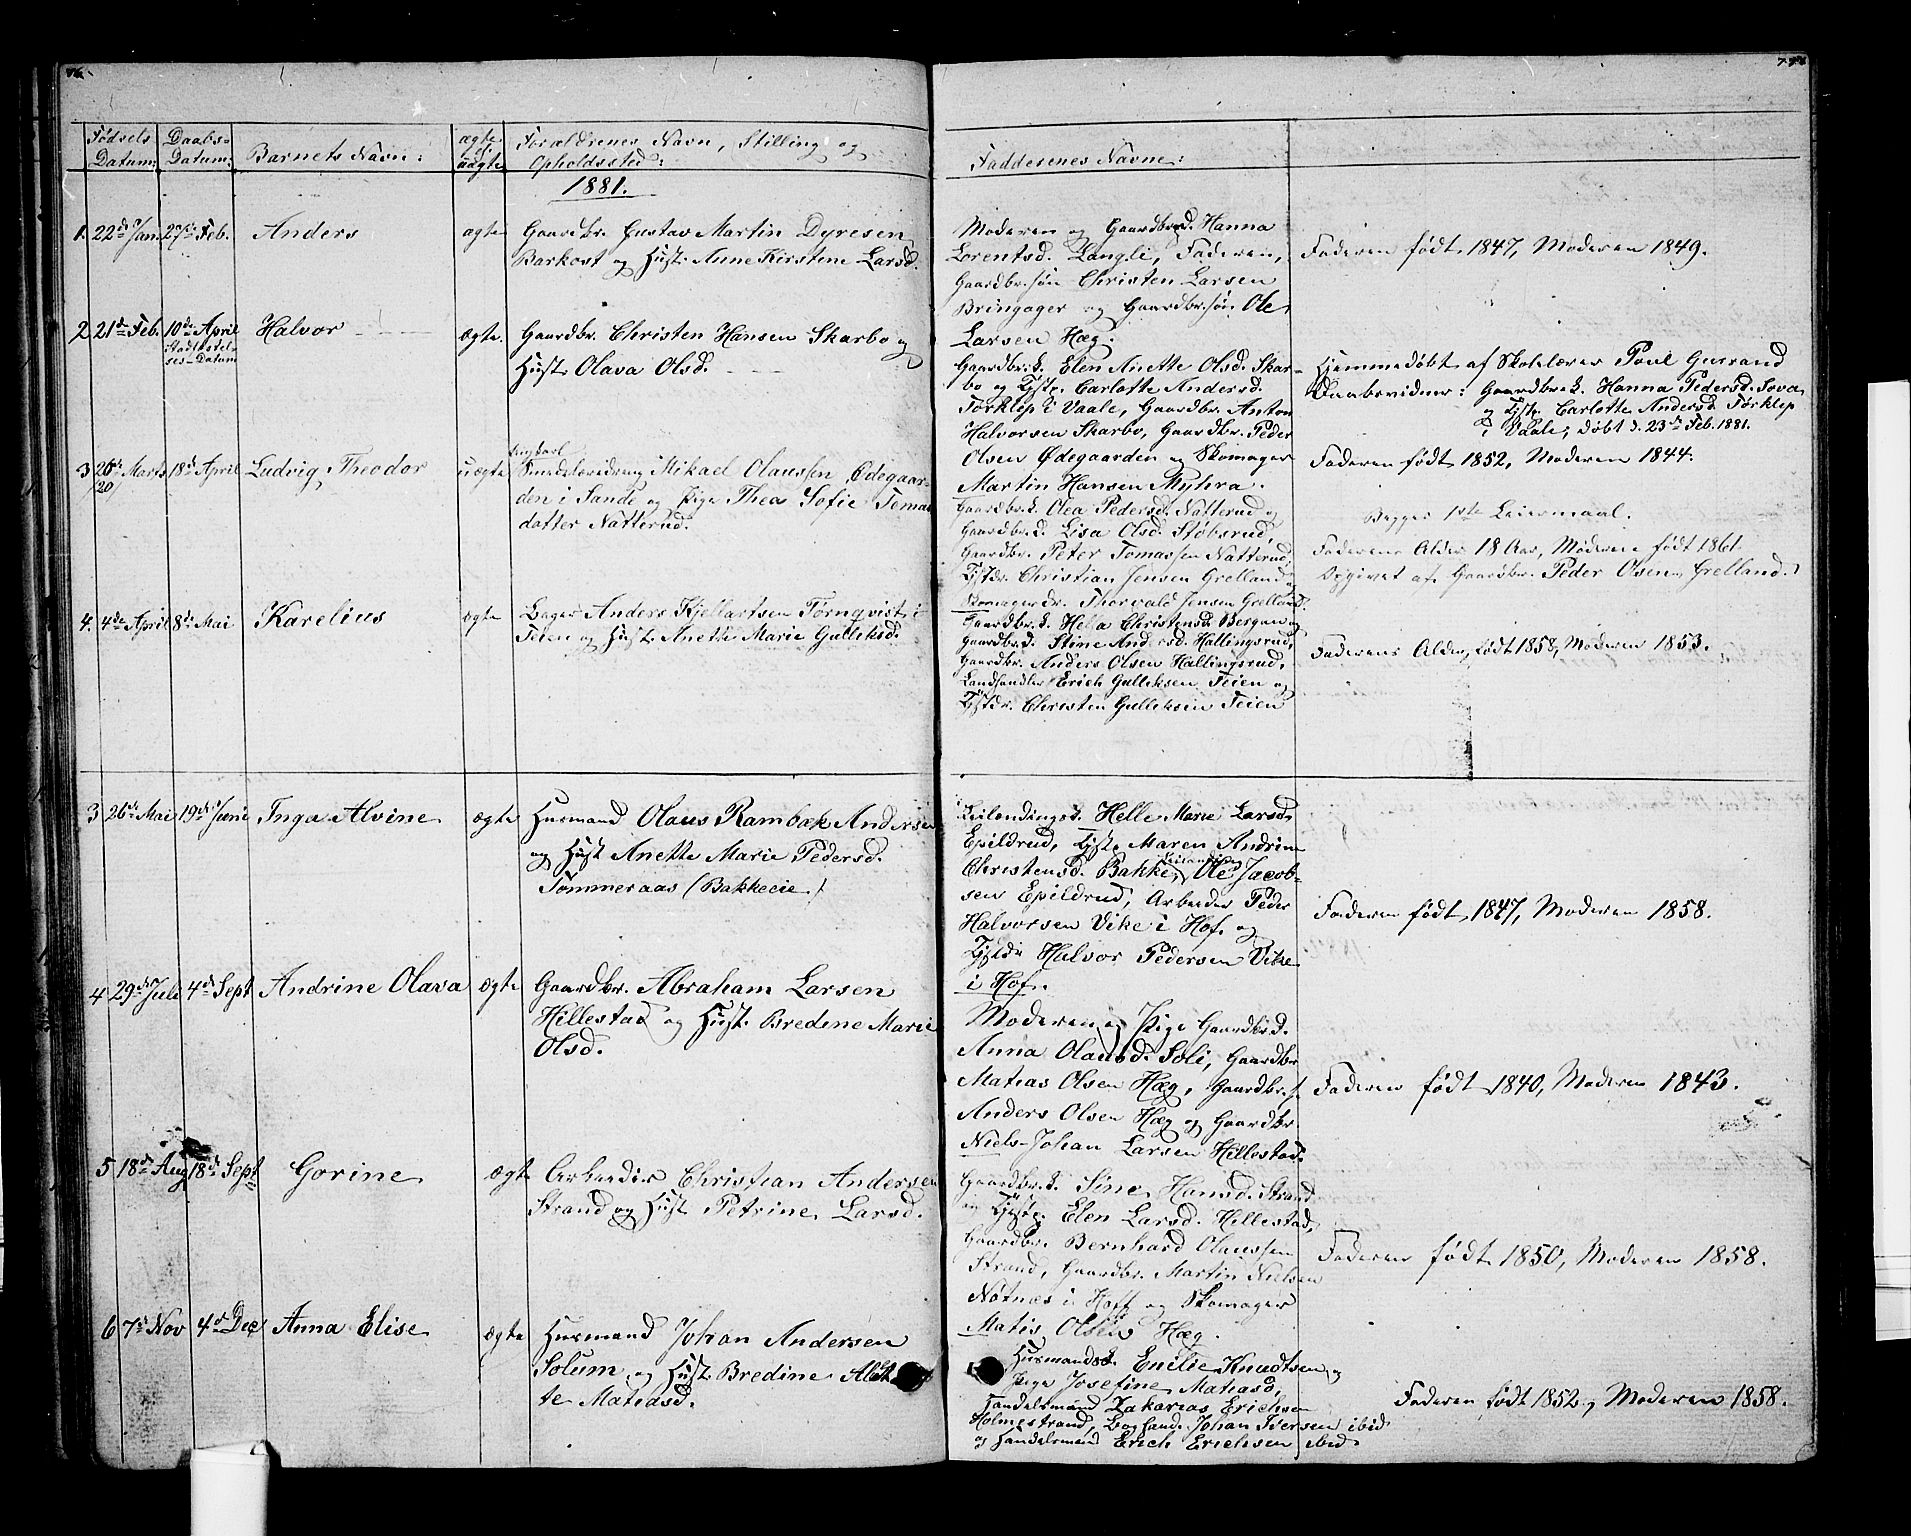 Fødsels Datum: Daabs-Datum: Barnets Navn: ægte el. uægte Forældrenes Navn, Stilling og Opholdssted:
Faddernes Navne:
1881.
1. 22de Jan. 27de Feb. Anders ægte Gaardbr. Gustav Martin Dyresen
Barkost og Hust. Anne Kirstine Larsd.
Moderen og Gaardbrd. Hanna
Lorentsd. Langli, Faderen,
Gaardbr.søn Christen Larsen
Bringager og Gaardbr.søn Ole
Larsen Hæg.
Faderen født 1847, Moderen 1849.
2 21de Feb. 10de April Halvor ægte. Gaardbr. Christen Hansen Skarbo og
Stadfæstel-
ses-Datum
Hust. Olava Olsd.
Gaardbr.k. Elen Anette Olsd. Skar-
bo og Tjstp. Carlotte Andersd.
Torklep i Vaale, Gaardbr. Anton
Halvorsen Skarbo, Gaardbr. Peder
Olsen Ødegaarden og Skomager
Martin Hansen Myhra.
Hjemmedøbt af Skolelærer Poul Gusrand
Daabsvidner: Gaardbr.k. Hanna Pedersd. Sova
og Tjstp. Carlotte Andersd. Torklep
i Vaale; døbt d. 23de Feb. 1881.
Faderen født 1852, Moderen 1844.
3 26de Marts 18de April Ludvig Theodor uægte Ungkarl
/20/
Mikael Olaussen Ødegaar-
den i Sande og Pige Thea Sofie Tomas
datter Natterud.
Gaardbr.k. Olea Pedersd. Natterud og
Gaardbr.d. Lisa Olsd. Støbsrud,
Gaardbr. Peter Tomassen Natterud,
Tjstdr. Christian Jensen Grelland og
Skomagerdr. Thorvald Jensen Grelland.
Begges 1ste Leiermaal.
Faderens Alder 18 Aar, Moderen født 1861
Opgivet af Gaardbr. Peder Olsen Grelland.
4. 4de April 8de Mai Karelius ægte Anders Kjellartsen Tørnqvist i
Teien og Hust. Anette Marie Gulliksd.
Gaardbr.k. Christensd. Bergan og
Gaardbr.d. Stine Andersd. Hallingsrud,
Gaardbr. Anders Olsen Hallingsrud,
Landhandler Erich Gulliksen Teien og
Tjstdr. Christen Gulliksen Teien
Faderens Alder, født 1858, Moderen 1853.
3 26de Mai 19de Juni Inga Alvine ægte Husmand Olaus Rambæk Andersen
og Hust Anette Marie Pedersd.
Tømmeraas (Bakkeeie)
Leilendingsk. Helle Marie Larsd.
Epildrud, Tjstp. Maren Andrine
Christensd. Bakke, Leilending Ole Jacob-
sen Epildrud, Arbeider Peder
Halvorsen Vike i Hof. og
Tjstdr Halvor Pedersen Vike
i Hof.
Faderen født 1847, Moderen 1858.
4 29de Juli 4de Sept Andrine Olava ægte Gaardbr. Abraham Larsen
Hillestad og Hust. Bredine Marie
Olsd.
Moderen og Pige Gaardbr.d.
Anna Olausd. Soli, Gaardbr
Matias Olsen Hæg, Gaardbr.s.
Anders Olsen Hæg og Gaardbr
Niels Johan Larsen Hillestad.
Faderen født 1840, Moderen 1843.
5 18de Aug 18de Sept Gorine ægte Arbeider Christian Andersen
Strand og Hust. Petrine Larsd.
Gaardbr.k. Sine Hansd. Strand
og Elen Larsd. Hillestad,
Gaardbr. Bernhard Olaussen
Strand, Gaardbr. Martin Nielsen
Nøtnæs i Hoff og Skomager
Matis Olsen Hæg.
Faderen født 1850, Moderen 1858.
6 7de Nov 4de Dec Anna Elise ægte Husmand Johan Andersen
Solum og Hust. Bredine Alet-
te Matiasd.
Husmandsk. Emilie Knudtsen og
Pige Josefine Matiasd,
Handelsmand Zakarias Erichsen
Holmestrand, Johan Iversen ibid
og Handelsmand Erich Erichsen ibid.
Faderen født 1852, Moderen 1858.